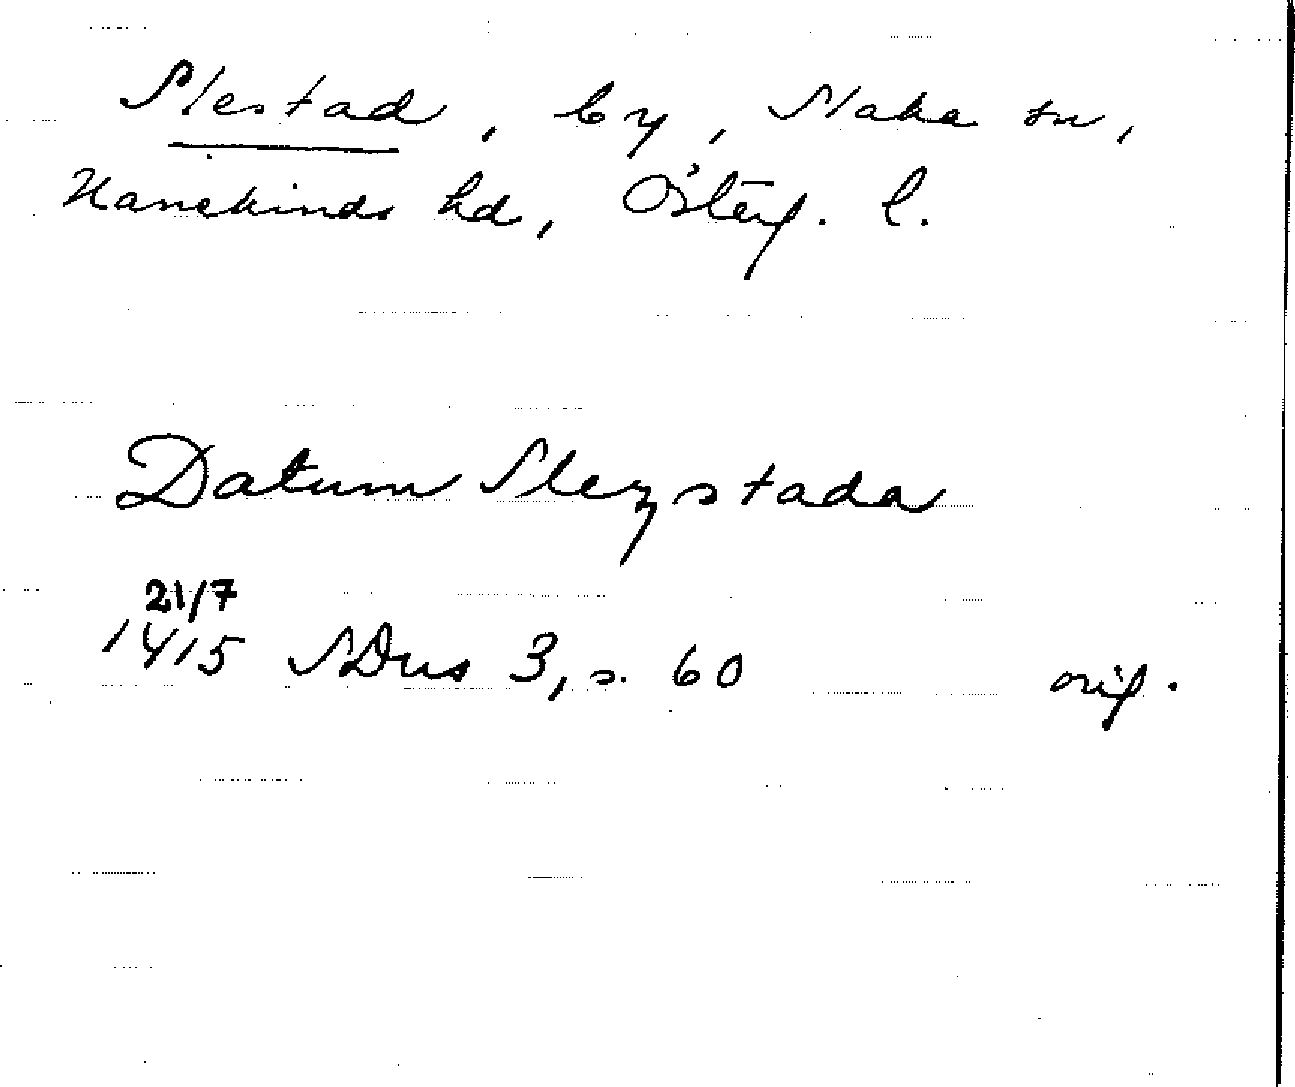 Slestad, by, Slaka sn,
Hanekinds hd, Österg. l.
Datum Slezstada
21/7
1415 SDns 3, s. 60 orig.